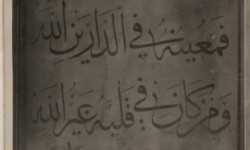 فمعينه في الدارين الله
ومن كان في قلبه غير الله